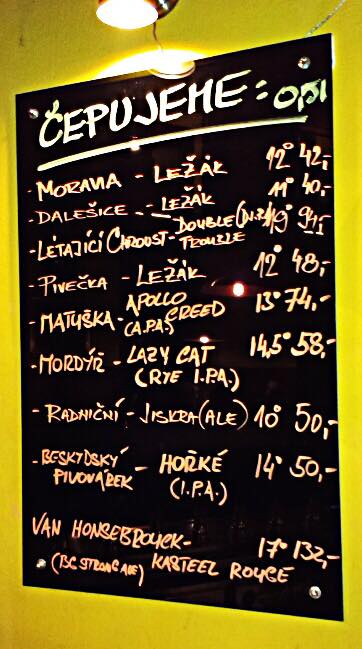 ČEPUJEME: 0,5l
- MORAVIA - LEŽÁK 12° 42,-
- DALEŠICE - LEŽÁK 11° 40,-
- LÉTAJÍCÍ CHROUST - DOUBLE (N.I.P.A) TROUBLE 19° 94,-
- PIVEČKA - LEŽÁK 12° 48,-
- MATUŠKA - APOLLO CREED (A.P.A.) 13° 74,-
- MORDÝŘ - LAZY CAT 14,5° 58,-
(RYE I.P.A.)
- RADNIČNÍ - JISKRA (ALE) 10° 50,-
- BESKYDSKÝ PIVOVÁREK - HOŘKÉ 14° 50,-
(I.P.A.)
VAN HONSEBROUCK - 17° 132,-
(BG STRONG ALE) KASTEEL ROUGE